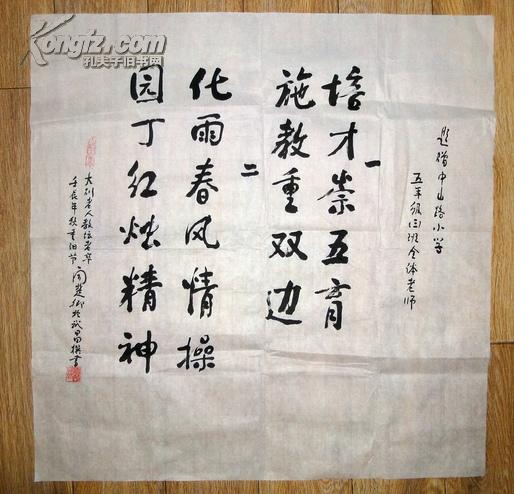 Kongfz.com
孔夫子旧书网
题赠中山路小学
五年级(三)班全体老师
一
培才崇五育
施教重双边
二
化雨春风情操
园丁红烛精神
壬辰年秋重阳节